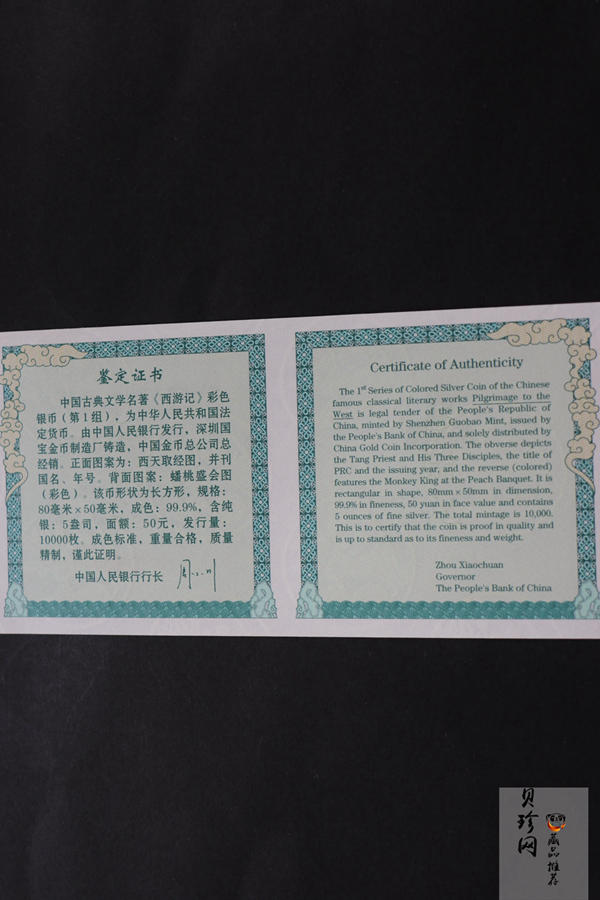 鉴定证书
中国古典文学名著《西游记》彩色
银币（第1组），为中华人民共和国法
定货币。由中国人民银行发行，深圳国
宝金币制造厂铸造，中国金币总公司总
经销。正面图案为：西天取经图，并刊
国名、年号。背面图案：蟠桃盛会图
（彩色）。该币形状为长方形，规格：
80毫米×50毫米，成色：99.9%，含纯
银：5盎司，面额：50元，发行量：
10000枚。成色标准，重量合格，质量
精制，谨此证明。
中国人民银行行长 周小川
Certificate of Authenticity
The 1st Series of Colored Silver Coin of the Chinese
famous classical literary works Pilgrimage to the
West is legal tender of the People's Republic of
China, minted by Shenzhen Guobao Mint, issued by
the People's Bank of China, and solely distributed by
China Gold Coin Incorporation. The obverse depicts
the Tang Priest and His Three Disciples, the title of
PRC and the issuing year, and the reverse (colored)
features the Monkey King at the Peach Banquet. It is
rectangular in shape, 80mm×50mm in dimension,
99.9% in fineness, 50 yuan in face value and contains
5 ounces of fine silver. The total mintage is 10,000.
This is to certify that the coin is proof in quality and
is up to standard as to its fineness and weight.
Zhou Xiaochuan
Governor
The People's Bank of China
贝珍网
藏品推荐